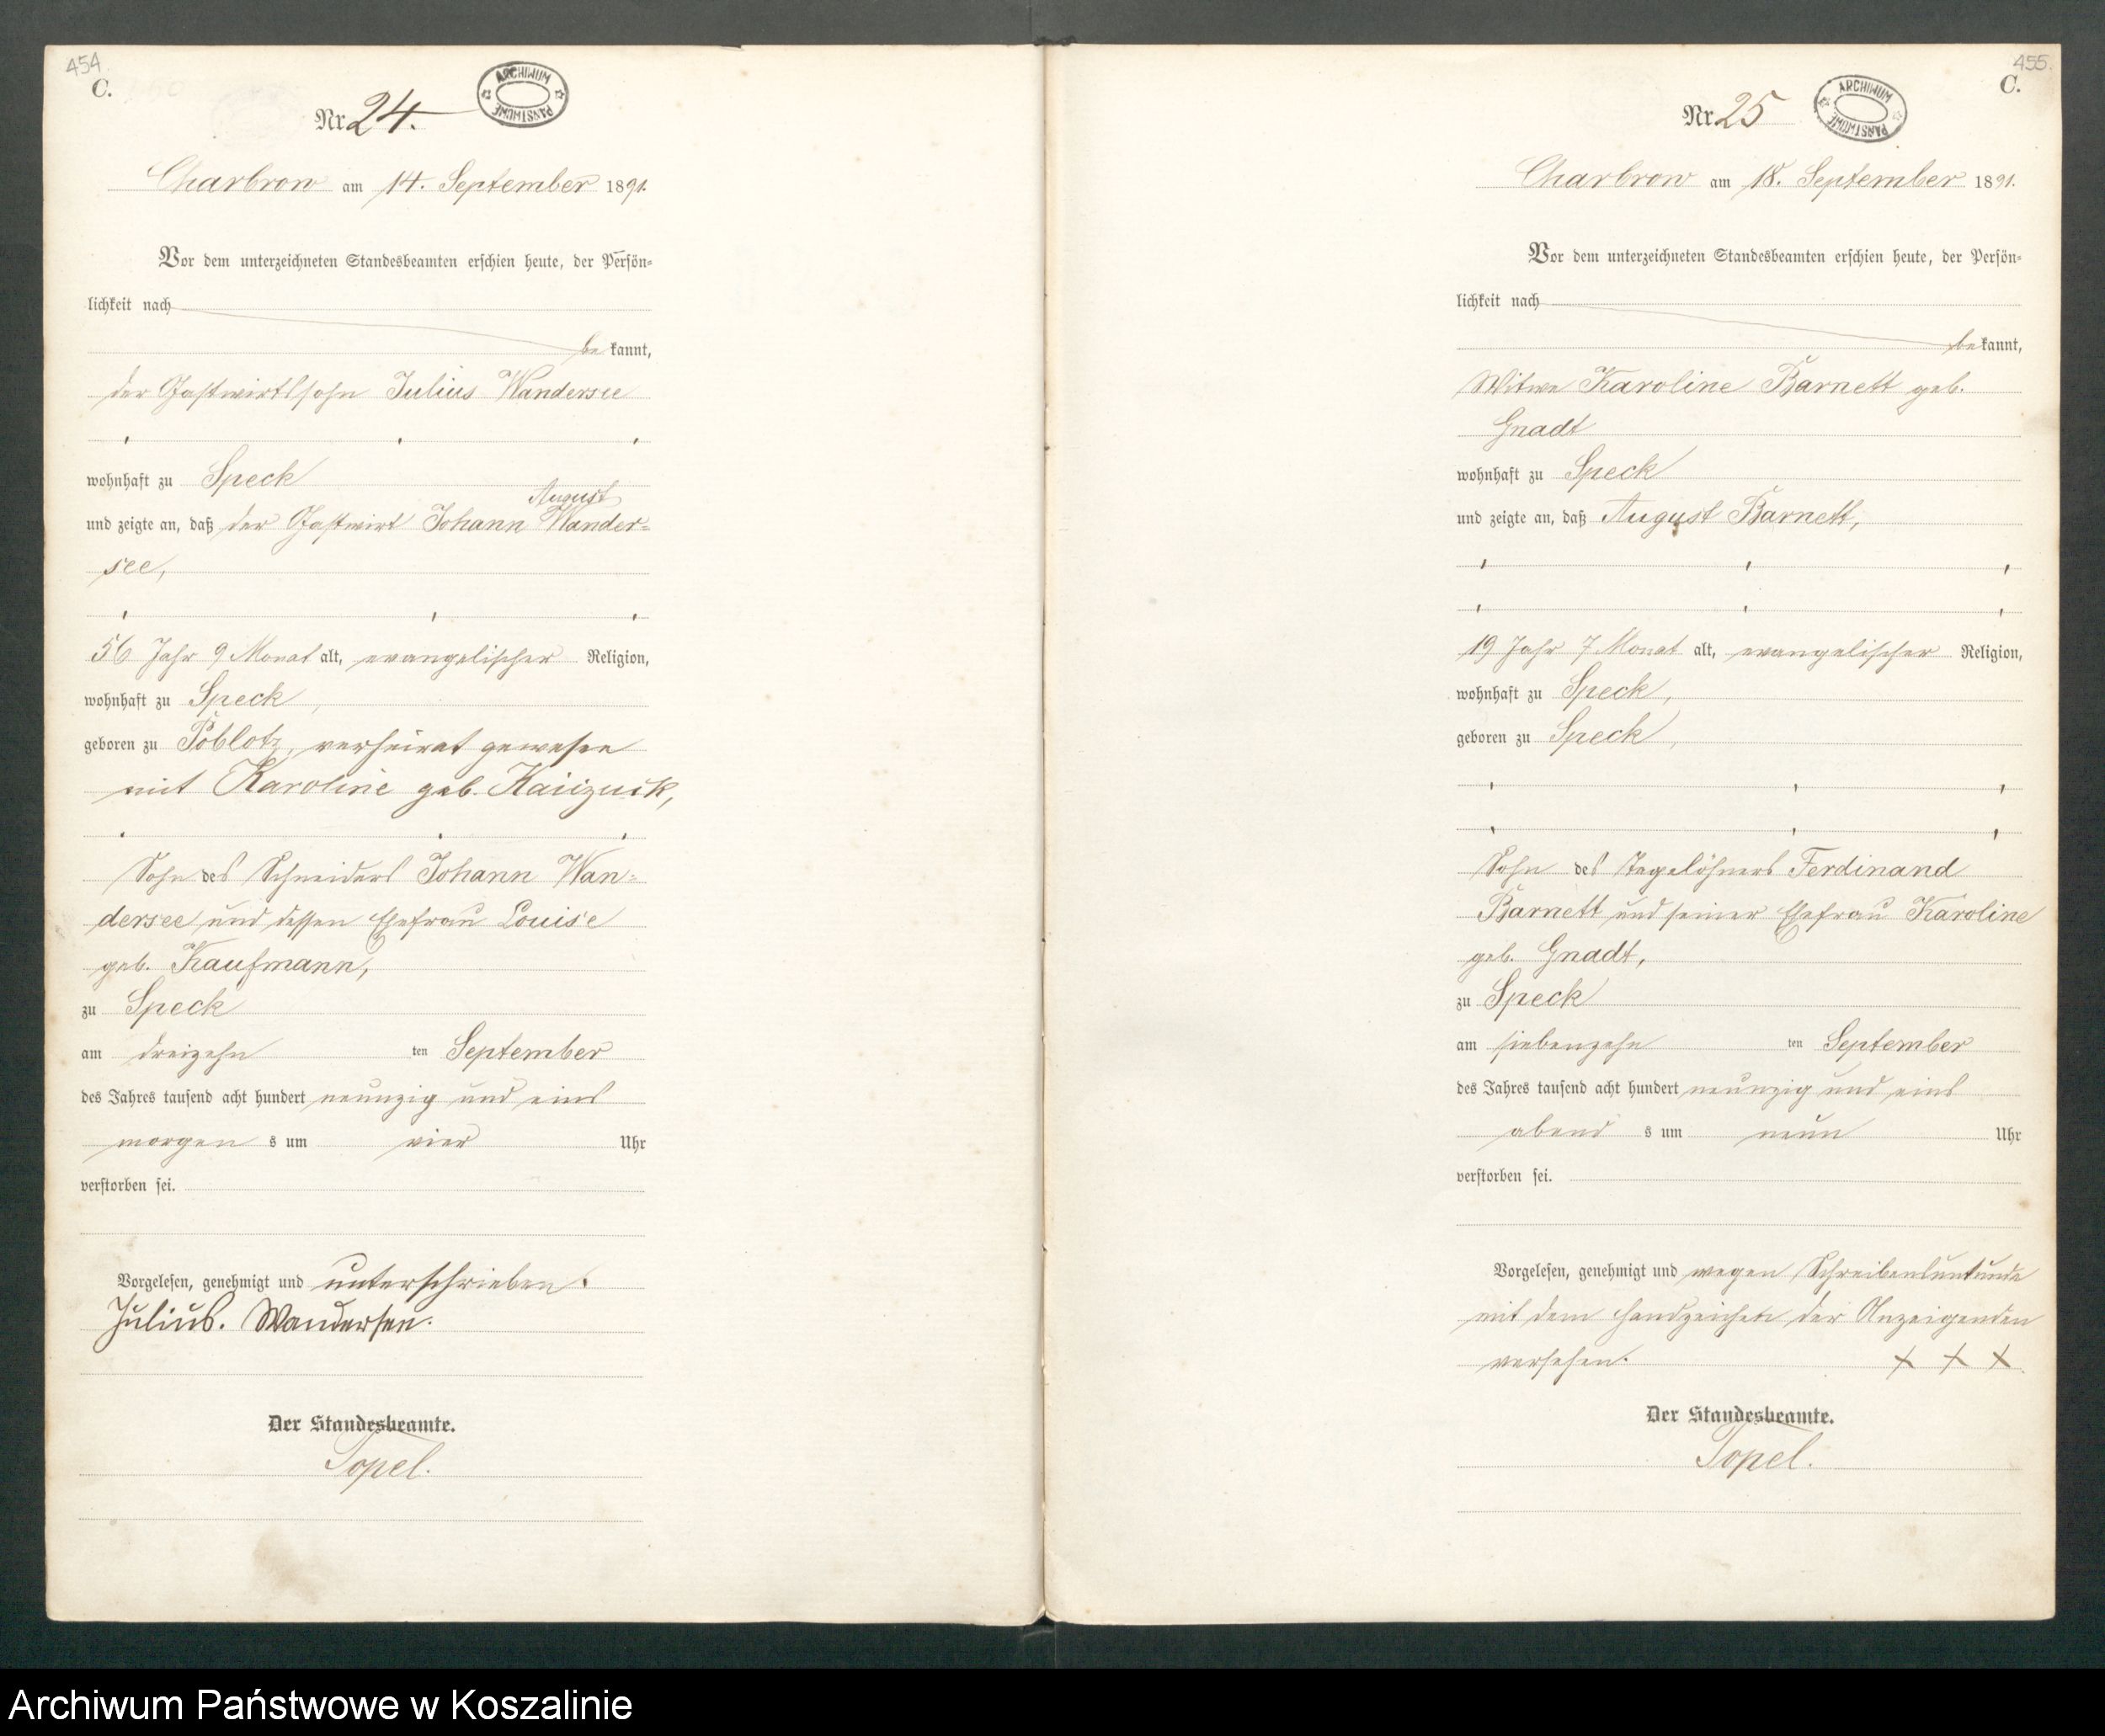 454.
C.
ARCHIWUM PAŃSTWOWE
Nr 24.
Charbrow am 14. September 1891.
Vor dem unterzeichneten Standesbeamten erschien heute, der Persön-
lichkeit nach
be kannt,
der Gastwirtssohn Julius Wandersee
wohnhaft zu Speck
August
und zeigte an, daß der Gastwirt Johann Wander-
see,
56 Jahr 9 Monat alt, evangelischer Religion,
wohnhaft zu Speck,
geboren zu Poblotz, verheirat gewesen
mit Karoline geb.
Sohn des Schneiders Johann Wan-
dersee und dessen Ehefrau Louise
geb. Kaufmann,
zu Speck
am dreizehn ten September
des Jahres tausend acht hundert neunzig und eins
morgen s um vier Uhr
verstorben sei.
Vorgelesen, genehmigt und unterschrieben.
Julius. Wandersee.
Der Standesbeamte.
Topel.
455.
C.
ARCHIWUM PAŃSTWOWE
Nr 25
Charbrow am 18. September 1891.
Vor dem unterzeichneten Standesbeamten erschien heute, der Persön-
lichkeit nach
be kannt,
Witwe Karoline Barnett geb.
Gnadt
wohnhaft zu Speck
und zeigte an, daß August Barnett,
19 Jahr 7 Monat alt, evangelischer Religion,
wohnhaft zu Speck,
geboren zu Speck,
Sohn des Tagelöhners Ferdinand
Barnett und seiner Ehefrau Karoline
geb. Gnadt,
zu Speck
am siebenzehn ten September
des Jahres tausend acht hundert neunzig und eins
abend s um neun Uhr
verstorben sei.
Vorgelesen, genehmigt und wegen Schreibensunkunde
mit dem Handzeichen der Anzeigenden
versehen. + + +
Der Standesbeamte.
Topel.
Archiwum Państwowe w Koszalinie